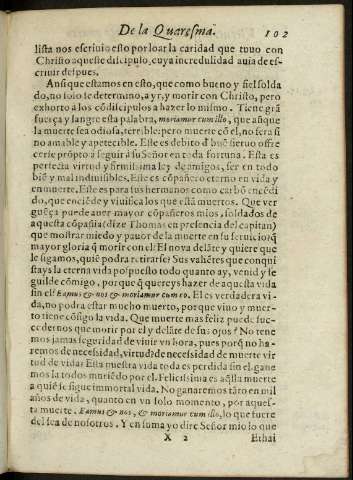 De la Quaresma. 102
lista nos escriuio esto por loar la caridad que tuuo con
Christo aqueste discipulo, cuya incredulidad auia de es-
criuir despues.
Ansi que estamos en esto, que como bueno y fiel solda
do, no solo se determino, a yr, y morir con Christo, pero
exhorto a los cōdiscipulos a hazer lo mismo. Tiene grā
fuerça y sangre esta palabra, moriamur cum illo, que aūque
la muerte sea odiosa, terrible: pero muerte cō el, no sera si
no amable y apetecible. Este es debito d' buē sieruo offre
cerse prōpto a seguir à su Señor en toda fortuna. Esta es
perfecta virtud y firmissima ley de amigos, ser en todo
biē y mal indiuisibles. Este es cōpañero eterno en vida y
en muerte. Este es para sus hermanos como carbō encēdi
do, que enciēde y viuifica los que estā muertos. Que ver
guēça puede auer mayor cōpañeros mios, soldados de
aquesta cōpañia (dize Thomas en presencia del capitan)
que mostrar miedo y pauor de la muerte en su seruicio? q
mayor gloria q̄ morir con el? El nova delāte y quiere que
le sigamos, quiē podra retirarse? Sus valiētes que conqui
stays la eterna vida pospuesto todo quanto ay, venid y se
guilde cōmigo, por que q̄ quereys hazer de aquesta vida
sin el? Eamus & nos & moriamur cum eo. El es verdadera vi
da, no podra estar mucho muerto, porque viuo y muer-
to tiene cōsigo la vida. Que muerte mas feliz puede suc-
cedernos que morir por el y delāte de sus ojos? No tene
mos jamas seguridad de viuir vn hora, pues porq̄ no ha-
remos de necessidad, virtud? de necessidad de muerte vir
tud de vida? Esta nuestra vida toda es perdida sin el. gane
mos la todos muriēdo por el. Felicissima es aq̄lla muerte
a quiē se sigue immortal vida. No ganaremos tāto en mil
años de vida, quanto en vn solo momento, por aques-
ta muerte. Eamus & nos, & moriamur cum illo, lo que fuere
del sea de nosotros. Y en suma yo dire Señor mio lo que
X 2 Ethai